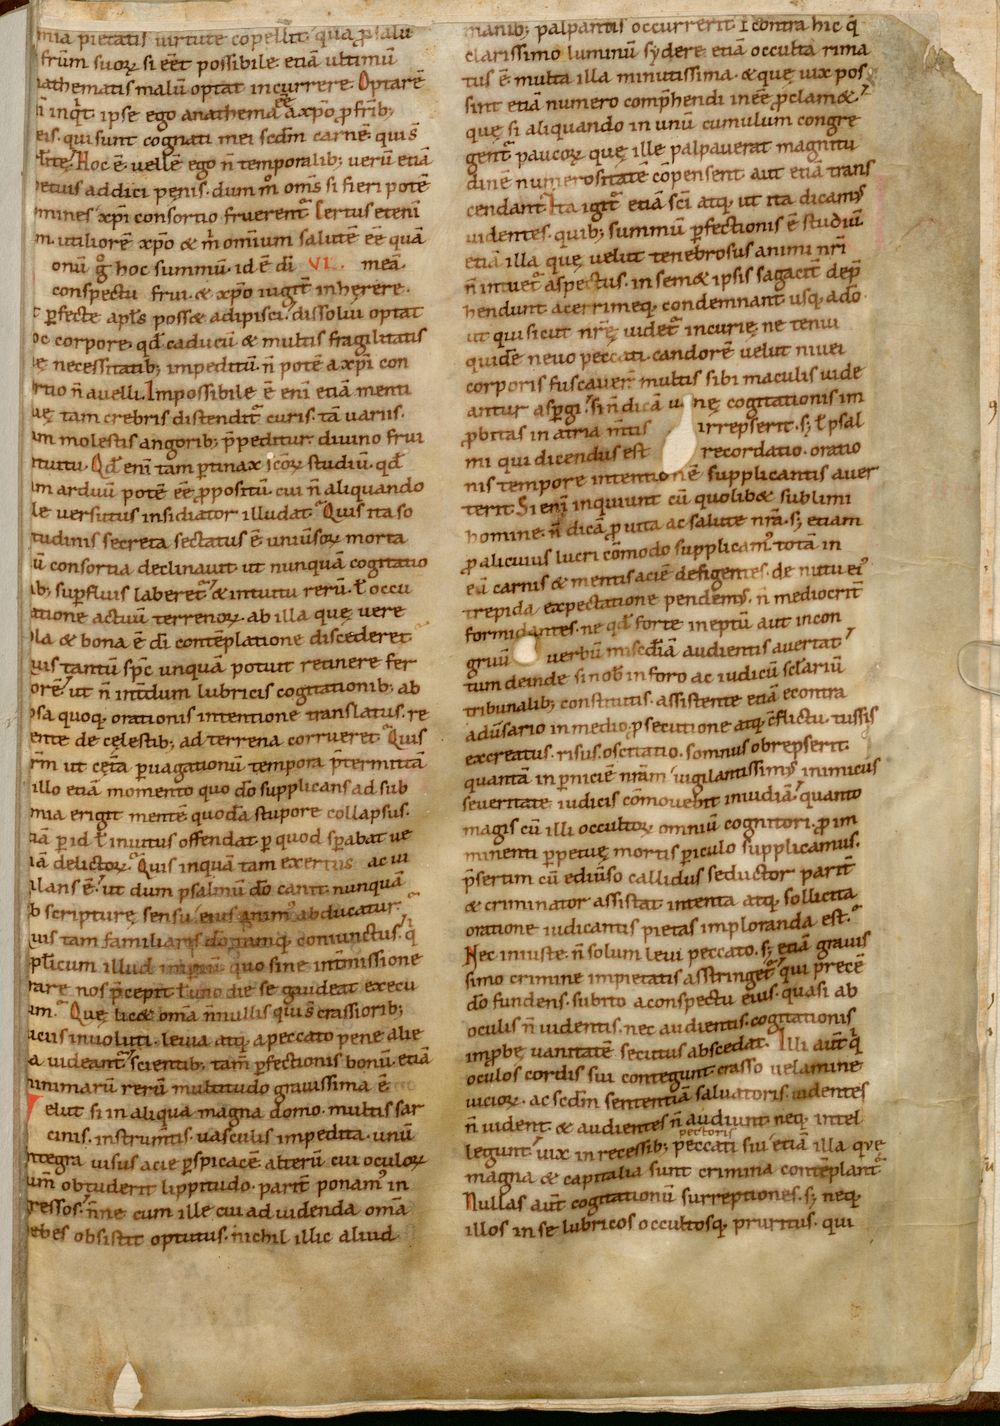 mia pietatis uirtute cōpellit. qua ꝓ salu
frūm suoꝝ si eēt possibile etiā ultimū
athematis malū optat incurrere. Optarē
inqͥt ipse ego anathema eē a xp̄o ꝓ frīb;
eis. qui sunt cognati mei scdm̄ carnē. qui s̄
Hoc ē. uellē ego n̄ temporalib; uerū etiā
etuis addici pęnis. dum m̊ om̄s si fieri potē
mines xp̄i consortio fruerent᷑. Certus etenī
m. utiliorē xp̄o & m̄ omnium salutē eē quā
onū g̊ hoc summū. id ē dī VI. meā
conspectu frui. & xp̄o iugit̄ inhęrere.
ꝑfecte apl̄s poss& adipisci. dissolui optat
oc corpore. qd̄ caducū & multis fragilitatis
ę necessitatib; impeditū. n̄ potē a xp̄i con
rtio n̄ auelli. Impossibile ē enī etiā menti
uę tam crebris distendit᷑ curis. tā uariis.
am molestis angorib; p̄peditur. diuino frui
ntuitu. Qd̄ enī tam ꝑtinax scōꝝ studiū. qd̄
am arduū potē eē ꝓpositū. cui n̄ aliquando
le uersutus insidiator illudat. Quis ita so
tudinis secreta sectatus ē. uniūsoꝝ morta
ū consortia declinauit. ut nunquā cogitatio
ib; suꝑfluis laberet᷑. & intuitu rerū. ł occu
atione actuū terrenoꝝ. ab illa quę uere
ola & bona ē dī contēplatione discederet
uis tantū sp̄c unquā potuit retinere fer
orē. ut n̄ int̄dum lubricis cogitationib; ab
psa quoq; orationis intentione translatus. re
ente de cęlestib; ad terrena corrueret. Quis
rm̄ ut cęta ꝑuagationū tempora p̄termittā
illo etiā momento quo dō supplicans ad sub
mia erigit mentē. quodā stupore collapsus.
iā ꝑ id ł inuitus offendat. ꝑ quod sꝑabat ue
iā delictoꝝ. Quis inquā tam exertus ac ui
ilans ē. ut dum psalmū dō canit. nunquā
b scripturę sensu eius animꝰ abducatur.
uis tam familiaris dō. coniunctus. qͥ
pl̄icum illud quo sine int̄missione
rare nos p̄cepit. ł uno die se gaudeat execu
um. Quę lic& om̄a n̄nullis qui s̄ crassiorib;
iciis inuoluti. leuia atq; a peccato pene alie
a uideant᷑. scientib; tam̄ ꝑfectionis bonū. etiā
inimarū rerū multitudo grauissima ē.
Velut si in aliqua magna domo. multis sar
cinis. instrum̄tis. uasculis impedita. unū
ntegra uisus acie ꝑspicacē. alterū cui oculoꝝ
um̄ obtuderit lippitudo. parit̄ ponamꝰ in
ressos. n̄ne cum ille cui ad uidenda om̄a
ebes obsistit optutus. nichil illic aliud
manib; palpantis occurrerit. E contra hic q̄
clarissimo luminū sydere. etiā occulta rima
tus ē. multa illa minutissima. & quę uix pos
sint etiā numero comp̄hendi inēē ꝓclam&.
quę si aliquando in unū cumulum congre
gent᷑ paucoꝝ quę ille palpauerat magnitu
dinē numerositatē cōpensent. aut etiā trans
cendant. Ita igit᷑ etiā scī atq; ut ita dicamꝰ
uidentes. quib; summū ꝑfectionis ē studiū
etiā illa quę uelut tenebrosus animi nr̄i
n̄ intuet᷑ aspectus. in sem& ipsis sagacit̄ dep̄
hendunt. acerrimeq; condemnant. usq; adō.
ut qui sicut nr̄ę uidet᷑ incurię. ne tenui
quidē neuo peccati. candorē uelut niuei
corporis fuscauer̄. multis sibi maculis uide
antur asꝑgi. si n̄ dicā uanę cogitationis im
ꝓbitas in atria m̄tis irrepserit. sꝫ ł psal
mi qui dicendus est recordatio. oratio
nis tempore intentionē supplicantis auer
terit. Si enī inquiunt cū quolib& sublimi
homine. n̄ dicā ꝓ uita ac salute nr̄a. sꝫ etiam
ꝓ alicuius lucri cōmodo supplicamꝰ. totā in
eū carnis & mentis aciē defigentes. de nutu eiꝰ
trepida expectatione pendemꝰ. n̄ mediocrit̄
formidantes. ne qd̄ forte ineptū aut incon
gruū uerbū misc̄diā audientis auertat.
tum deinde si nob̄ in foro ac iudicū sclariū
tribunalib; constitutis. assistente etiā econtra
adūsario in medio ꝓsecutione atq; cflictu. tussis
excreatus. risus. oscitatio. somnus obrepserit.
quantā in ꝑniciē nr̄am iugilantissimꝰ inimicus
seueritate iudicis cōmouebit inuidiā. quanto
magis cū illi occultoꝝ omniū cognitori. ꝓ im
minenti ꝑpetuę mortis ꝑiculo supplicamus.
p̄sertim cū ediūso callidus seductor parit̄
& criminator assistat. intenta atq; sollicita
oratione iudicantis pietas imploranda est.
Nec iniuste. n̄ solum leui peccato. sꝫ etiā grauis
simo crimine impietatis asstringet᷑. qui precē
dō fundens. subito a conspectu eius. quasi ab
oculis n̄ uidentis. nec audientis. cogitationis
imꝓbę uanitatē secutus abscedat. Illi aut̄ qͥ
oculos cordis sui contegunt. crasso uelamine
uicioꝝ. ac scdm̄ sententiā saluatoris. uidentes
n̄ uident. & audientes n̄ audiunt. neq; intel
legunt. uix in recessib; pectoris peccati sui etiā illa quę
magna & capitalia sunt crimina contēplant᷑.
Nullas aut̄ cogitationū surreptiones. sꝫ neq;
illos in se lubricos occultosq; pruritus. qui